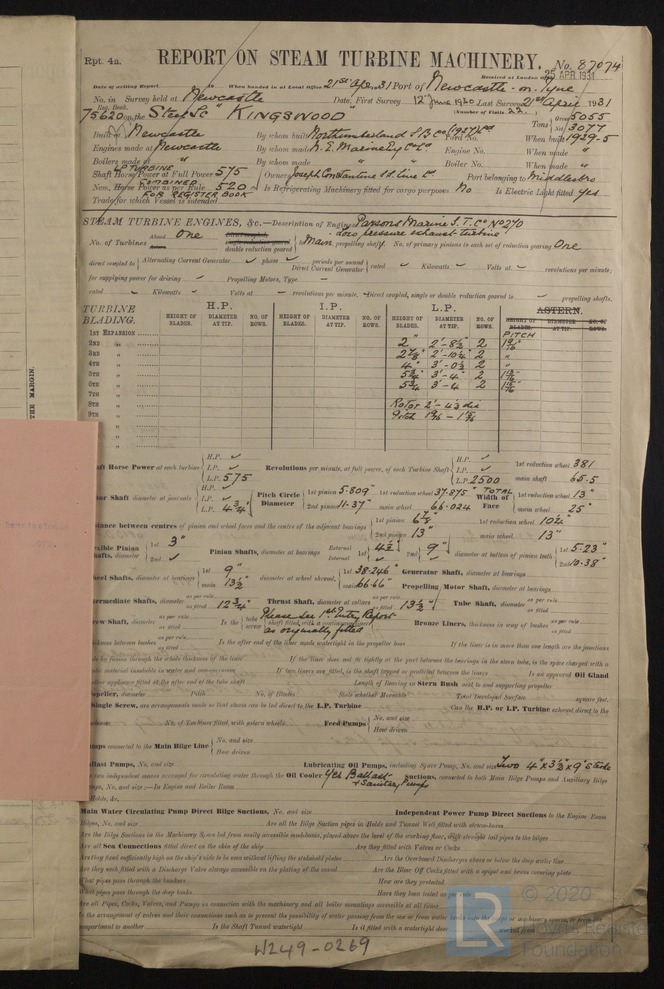 Rpt. 4a. REPORT ON STEAM TURBINE MACHINERY. No. 87074
Received at London Office 25 APR. 1931
Date of writing Report 19 When handed in at Local Office 21st Apr. 1931 Port of Newcastle-on-Tyne
No. in Survey held at Newcastle Date, First Survey 12th June 1930 Last Survey 21st April 1931
Reg. Book. (Number of Visits 22)
75620 on the Steel Sc "KINGSWOOD" Tons Gross 5055 Net 3077
Built at Newcastle By whom built Northumberland S B Co (1927) Ltd Yard No. When built 1929-5
Engines made at Newcastle By whom made N. E. Marine Eng Co Ld Engine No. When made "
Boilers made at " By whom made " Boiler No. When made "
LP TURBINE
Shaft Horse Power at Full Power 575 Owners Joseph Constantine S.S. Line Ld Port belonging to Middlesbro
COMBINED
Nom. Horse Power as per Rule 520 Is Refrigerating Machinery fitted for cargo purposes No Is Electric Light fitted Yes
FOR REGISTER BOOK
Trade for which Vessel is intended
STEAM TURBINE ENGINES, &c.—Description of Engines Parsons Marine S. T. Co No 270
Low pressure exhaust turbine
No. of Turbines Ahead One double reduction geared Main propelling shafts. No. of primary pinions to each set of reduction gearing One
direct coupled to Alternating Current Generator phase periods per second Direct Current Generator rated Kilowatts Volts at revolutions per minute;
for supplying power for driving Propelling Motors, Type
rated Kilowatts Volts at revolutions per minute. Direct coupled, single or double reduction geared to propelling shafts.
TURBINE BLADING. H.P. I.P. L.P. ASTERN.
HEIGHT OF BLADES. DIAMETER AT TIP. NO. OF ROWS. HEIGHT OF BLADES. DIAMETER AT TIP. NO. OF ROWS. HEIGHT OF BLADES. DIAMETER AT TIP. NO. OF ROWS. HEIGHT OF BLADES. DIAMETER AT TIP. NO. OF ROWS.
1ST EXPANSION PITCH
2ND " 2" 2'-8½" 2
3RD " 2'-10¼" 2 "
4TH " 4" 3'-0½" 2 "
5TH " 5¾" 3'-4" 2
6TH " 5¾" 3'-4" 2
7TH "
8TH " Rotor 2'-4½ dia
9TH "
Shaft Horse Power at each turbine H.P. I.P. L.P. 575 Revolutions per minute, at full power, of each Turbine Shaft H.P. I.P. L.P. 2500 1st reduction wheel 381 main shaft 65.5
Rotor Shaft diameter at journals H.P. I.P. L.P. 4¾" Pitch Circle Diameter 1st pinion 5.809" 2nd pinion 11.37" 1st reduction wheel 37.875" main wheel 66.024 "TOTAL Width of Face 1st reduction wheel 13" main wheel 25"
Distance between centres of pinion and wheel faces and the centre of the adjacent bearings 1st pinion 6⅞" 2nd pinion 13" 1st reduction wheel 10¼" main wheel 13"
Flexible Pinion Shafts, diameter 1st 3" 2nd Pinion Shafts, diameter at bearings External 1st 4½" Internal 1st 2nd 9" diameter at bottom of pinion teeth 1st 5.23" 2nd 10.38"
Wheel Shafts, diameter at bearings 1st 9" main 13½" diameter at wheel shroud, 1st 38.246" main 66.66" Generator Shaft, diameter at bearings
Propelling Motor Shaft, diameter at bearings
Intermediate Shafts, diameter as per rule as fitted 12¾" Thrust Shaft, diameter at collars as per rule as fitted 13½" Tube Shaft, diameter as per rule as fitted
Screw Shaft, diameter as per rule as fitted Is the tube screw shaft fitted with a continuous liner Please see 1st Entry Report as originally fitted Bronze Liners, thickness in way of bushes as per rule as fitted
Thickness between bushes as per rule as fitted Is the after end of the liner made watertight in the propeller boss If the liner is in more than one length are the junctions
made by fusion through the whole thickness of the liner If the liner does not fit tightly at the part between the bearings in the stern tube, is the space charged with a
material insoluble in water and non-corrosive If two liners are fitted, is the shaft lapped or protected between the liners Is an approved Oil Gland
appliance fitted at the after end of the tube shaft Length of Bearing in Stern Bush next to and supporting propeller
Propeller, diameter Pitch No. of Blades State whether Moveable Total Developed Surface square feet.
If Single Screw, are arrangements made so that steam can be led direct to the L.P. Turbine Can the H.P. or I.P. Turbine exhaust direct to the
Condenser No. of Turbines fitted with astern wheels Feed Pumps No. and size How driven
Pumps connected to the Main Bilge Line No. and size How driven
Ballast Pumps, No. and size Lubricating Oil Pumps, including Spare Pump, No. and size Two 4" x 3½" x 9" Stroke
Are two independent means arranged for circulating water through the Oil Cooler Yes Ballast + Sanitary Pumps Suctions, connected to both Main Bilge Pumps and Auxiliary Bilge
Pumps, No. and size:—In Engine and Boiler Room
In Holds, &c.
Main Water Circulating Pump Direct Bilge Suctions, No. and size Independent Power Pump Direct Suctions to the Engine Room
Bilges, No. and size Are all the Bilge Suction pipes in Holds and Tunnel Well fitted with strum-boxes
Are the Bilge Suctions in the Machinery Space led from easily accessible mudboxes, placed above the level of the working floor, with straight tail pipes to the bilges
Are all Sea Connections fitted direct on the skin of the ship Are they fitted with Valves or Cocks
Are they fixed sufficiently high on the ship's side to be seen without lifting the stokehold plates Are the Overboard Discharges above or below the deep water line
Are they each fitted with a Discharge Valve always accessible on the plating of the vessel Are the Blow Off Cocks fitted with a spigot and brass covering plate
What pipes pass through the bunkers How are they protected
What pipes pass through the deep tanks Have they been tested as per rule
Are all Pipes, Cocks, Valves, and Pumps in connection with the machinery and all boiler mountings accessible at all times
Is the arrangement of valves and their connections such as to prevent the possibility of water passing from the sea or from water ballast into the cargo or machinery spaces, or from one
compartment to another Is the Shaft Tunnel watertight Is it fitted with a watertight door worked from
W249-0269
THE MARGIN.
LR
© 2020
Lloyd's Register
Foundation